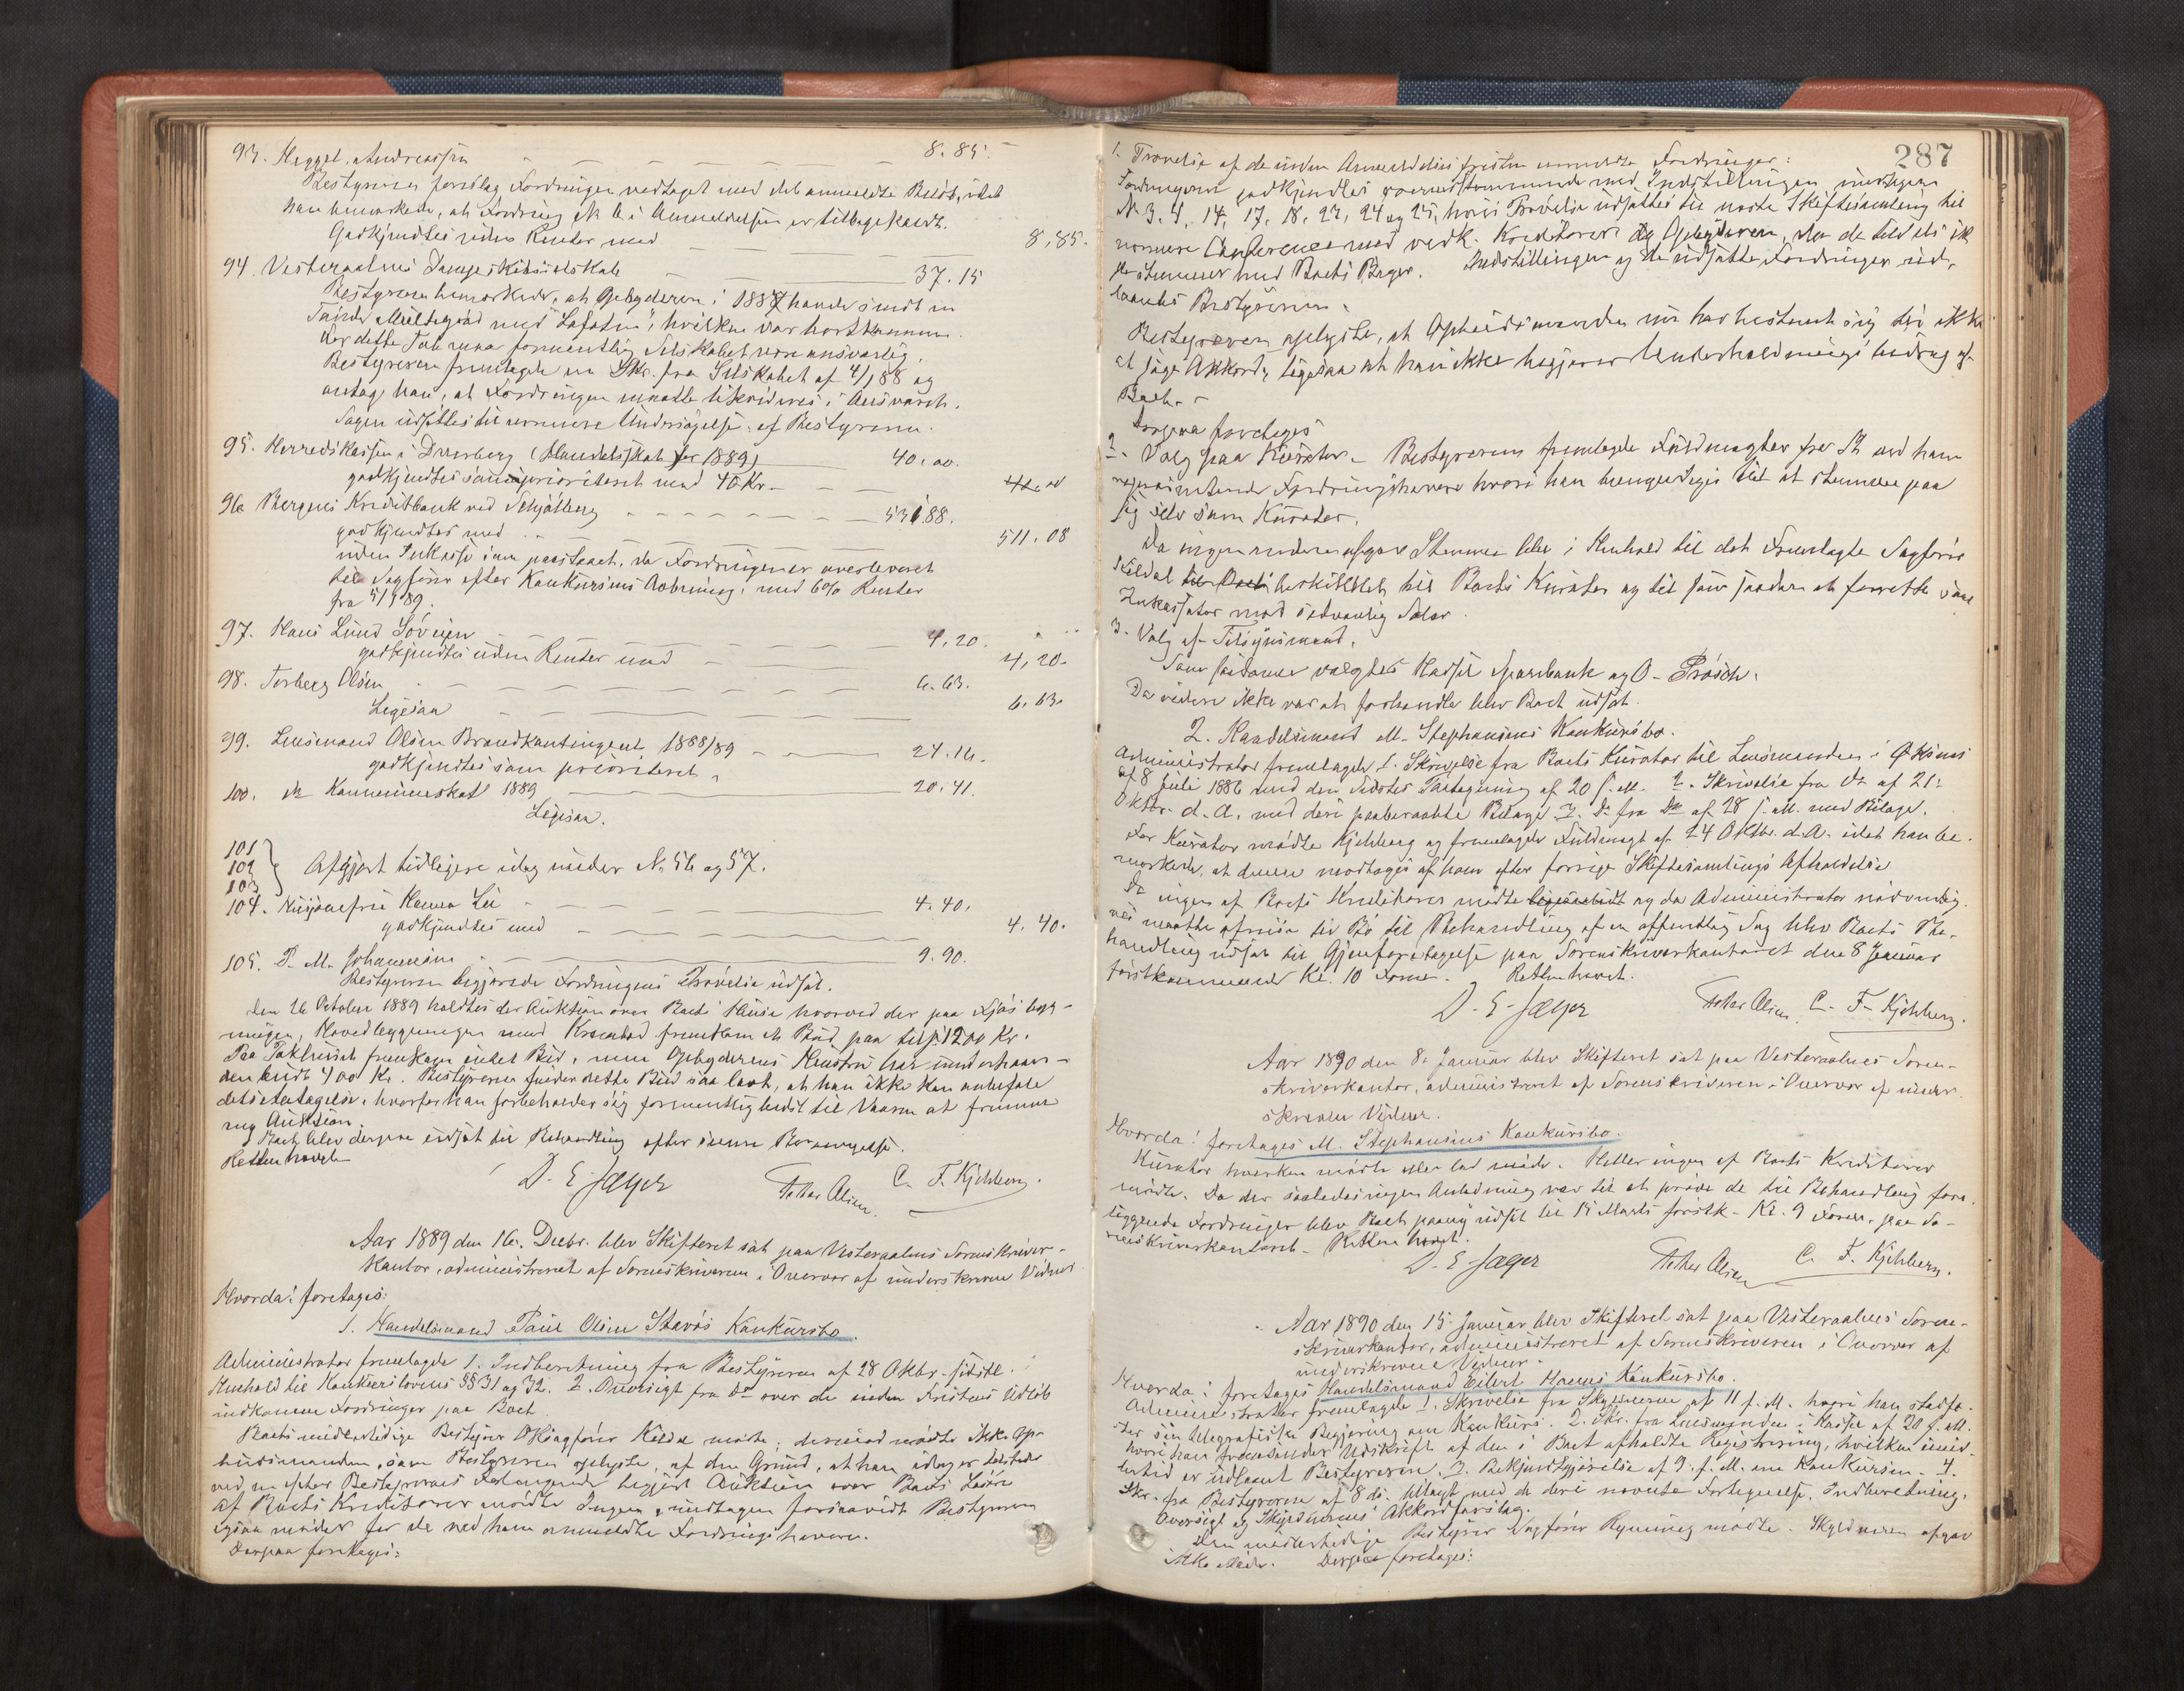 93. Andreassen — — — — — 8.85.
Bestyreren foreslog Fordringen vedtaget med det anmeldte Beløb, idet
han bemærkede, at Fordring № 6 i Anmeldelsen er tilbagekaldt.
Godkjendtes uden Renter med — — — 8,85.
94. Vesteraalens Dampskibsselskab — — 37.15
Bestyreren bemærkede, at Opbyderen i 1887 havde sendt en
Tønde Multegrød med "Lofoten", hvilken var bortkommen.
For dette Tab maa formentlig Selskabet være ansvarlig.
Bestyreren fremlagde en Skr. fra Selskabet af 4/1 88 og
antog han, at Fordringen maatte
Sagen udsattes til nærmere Undersøgelse af Bestyreren.
95. Herredskassen i Dverberg (Handelsskat for 1889) 40.00.
godkjendtes som prioriteret med 40 Kr. — —
96 Bergens Kreditbank ved Schjølberg — — — — 531.88.
godkjendtes med — — — — 511.08
uden Inkasso som paastaaet, da Fordringen er overleveret
til Sagfører efter Konkursens Aabning, med 6% Renter
fra 5/1 89.
97. Hans Lund Søveien — — — — 4.20.
godkjendtes uden Renter med — — 4,20.
98. Torberg Olsen — — — — — — 6.63.
Ligesaa — — — — 6.63.
99. Lensmand Olsen Brandkontingent 1888/89 — — 24.16.
godkjendtes som prioriteret.
100. do Kommuneskat 1889 — — 20.41.
Ligesaa.
101
102
103
Afgjort tidligere idag under №. 56 og 57.
104. Huusjomfru Lie — — — — 4.40.
godkjendtes med — — — — 4.40.
105. P. M. Johannesen — — — — 9.90.
Bestyreren begjærede Fordringens Prøvelse udsat.
Den 26 Octobr 1889 holdtes der Auktion over Boets Huse hvorved der paa Fjøsbyg-
ningen, Hovedbygningen med Krambod fremkom et Bud paa tils. 1200 Kr.
Paa intet Bud, men Opbyderens Hustru har underhaan-
den budt 400 Kr. Bestyreren finder dette Bud saa lavt, at han ikke kan anbefale
dets Antagelse, hvorfor han forbeholder sig formentlig hertil til Vaaren at fremme
ny Auktion.
Boet blev derpaa udsat til Behandling efter
Retten hævet
D. E. Jæger Pether Olsen C. F. Kjelberg.
Aar 1889 den 16. Decbr. blev Skifteret sat paa Vesteraalens Sorenskriver-
kontor, administreret af Sorenskriveren i Overvær af underskrevne Vidner
Hvorda! foretages:
1. Handelsmand Paul Olsen Stavøs Konkursbo.
Administrator fremlagde 1. Indberetning fra Bestyreren af 28 Oktbr. sidstl.
Henhold til Konkurslovens §§ 31 og 32. 2. Oversigt fra do over de inden Fristens Udløb
indkomne Fordringer paa Boet.
Boets midlertidige Bestyrer O.Sagfører Kildal mødte; derimod mødte ikke Op-
budsmanden, som Bestyreren oplyste, af den Grund, at han idag er tilstede
ved en efter Bestyrerens Forlangende begjært Auktion over Boets Løsøre
Af Boets Kreditorer mødte Ingen, undtagen forsaavidt Bestyreren
ogsaa møder for de ved ham anmeldte Fordringshavere.
Derpaa foretoges:
287
1. Prøvelse af de inden Anmeldelsesfristen anmeldte Fordringer:
Fordringerne godkjendtes overensstemmende med Indstillingen undtagen
№ 3. 4. 14, 17. 18. 23, 24 og 25, hvis Prøvelse udsattes til næste Skiftesamling til
nærmere Conference med vedk. Kreditorer og Opbyderen, da de tildels ik-
ke stemmer med Boets Bøger. Indstillingen og de udsatte Fordringer ud-
laantes Bestyreren.
Bestyreren oplyste, at Opbudsmanden nu har bestemt sig til ikke
at søge Akkord, ligesaa at han ikke begjærer Underholdningsbidrag af
Boet. —
foretoges
2. Valg paa Kurator. — Bestyreren fremlagde Fuldmagter fra de ved ham
repræsenterede Fordringshavere hvori han bemyndiges til at stemme paa
sig selv som Kurator.
Da ingen anden afgav Stemme blev i Henhold til det Fremlagte Sagfører
Kildal beskikket til Boets Kurator og til som saadan at forrette som
Inkassator mod sedvanlig Salær.
3. Valg af Tilsynsmænd.
Som saadanne valgtes Hadsel Sparebank og O. Prøsch.
Da videre ikke var at forhandle blev Boet udsat.
2. Handelsmand M. Stephansens Konkursbo.
Administrator fremlagde 1. Skrivelse fra Boets Kurator til Lensmanden i Øksnes
af 8 Juli 1886 med den Sidstes Paategning af 20 f. M. 2. Skrivelse fra do af 21.
Oktbr. d. A. med deri paaberaabte Bilage 3. do fra do af 28 f. M. med Bilage.
For Kurator mødte Kjelberg og fremlagde Fuldmagt af 24 Oktbr. d. A. idet han be-
mærkede, at denne modtoges af ham efter forrige Skiftesamlings Afholdelse
Da ingen af Boets Kreditorer mødte og da Administrator nødvendig-
vis maatte afreise til Bø til Behandling af en offentlig Sag blev Boets Be-
handling udsat til Gjenforetagelse paa Sorenskriverkontoret den 8 Januar
førstkommende Kl. 10 Form. Retten hævet.
D. E. Jæger Pether Olsen C. F. Kjelberg.
Aar 1890 den 8. Januar blev Skifteret sat paa Vesteraalens Soren-
skriverkontor, administreret af Sorenskriveren i Overvær af under-
skrevne Vidner.
Hvorda! foretages M. Stephansens Konkursbo.
Kurator hverken mødte eller lod møde. Heller ingen af Boets Kreditorer
mødte. Da der saaledes ingen Anledning var til at prøve de til Behandling fore-
liggende Fordringer blev Boet paany udsat til 15 Marts førstk. Kl. 9 Form. paa So-
renskriverkontoret. Retten hævet.
D. E. Jæger Pether Olsen C. F. Kjelberg.
Aar 1890 den 15. Januar blev Skifteret sat paa Vesteraalens Soren-
skriverkontor, administreret af Sorenskriveren i Overvær af
underskrevne Vidner.
Hvorda! foretages Handelsmand Eilert Hanses Konkursbo.
Administrator fremlagde 1. Skrivelse fra Skyldneren af 11 f. M. hvori han stadfæ-
ster sin telegrafiske Begjæring om Konkurs. 2. Skr. fra Lensmanden i Hadsel af 20 f. M.
hvori han fremsender Udskrift af den i Boet afholdte Registrering, hvilken imid-
lertid er udlaant Bestyreren. 3. Bekjendtgjørelse af 9. f. M. om Konkursen. 4.
Skr. fra Bestyreren af 8 ds. tillagt med de deri nævnte Fortegnelse, Indberetning,
Oversigt og Skyldnerens Akkordforslag.
Den midlertidige Bestyrer Sagfører Rynning mødte. Skyldneren afgav
ikke Møde. Derpaa foretages: